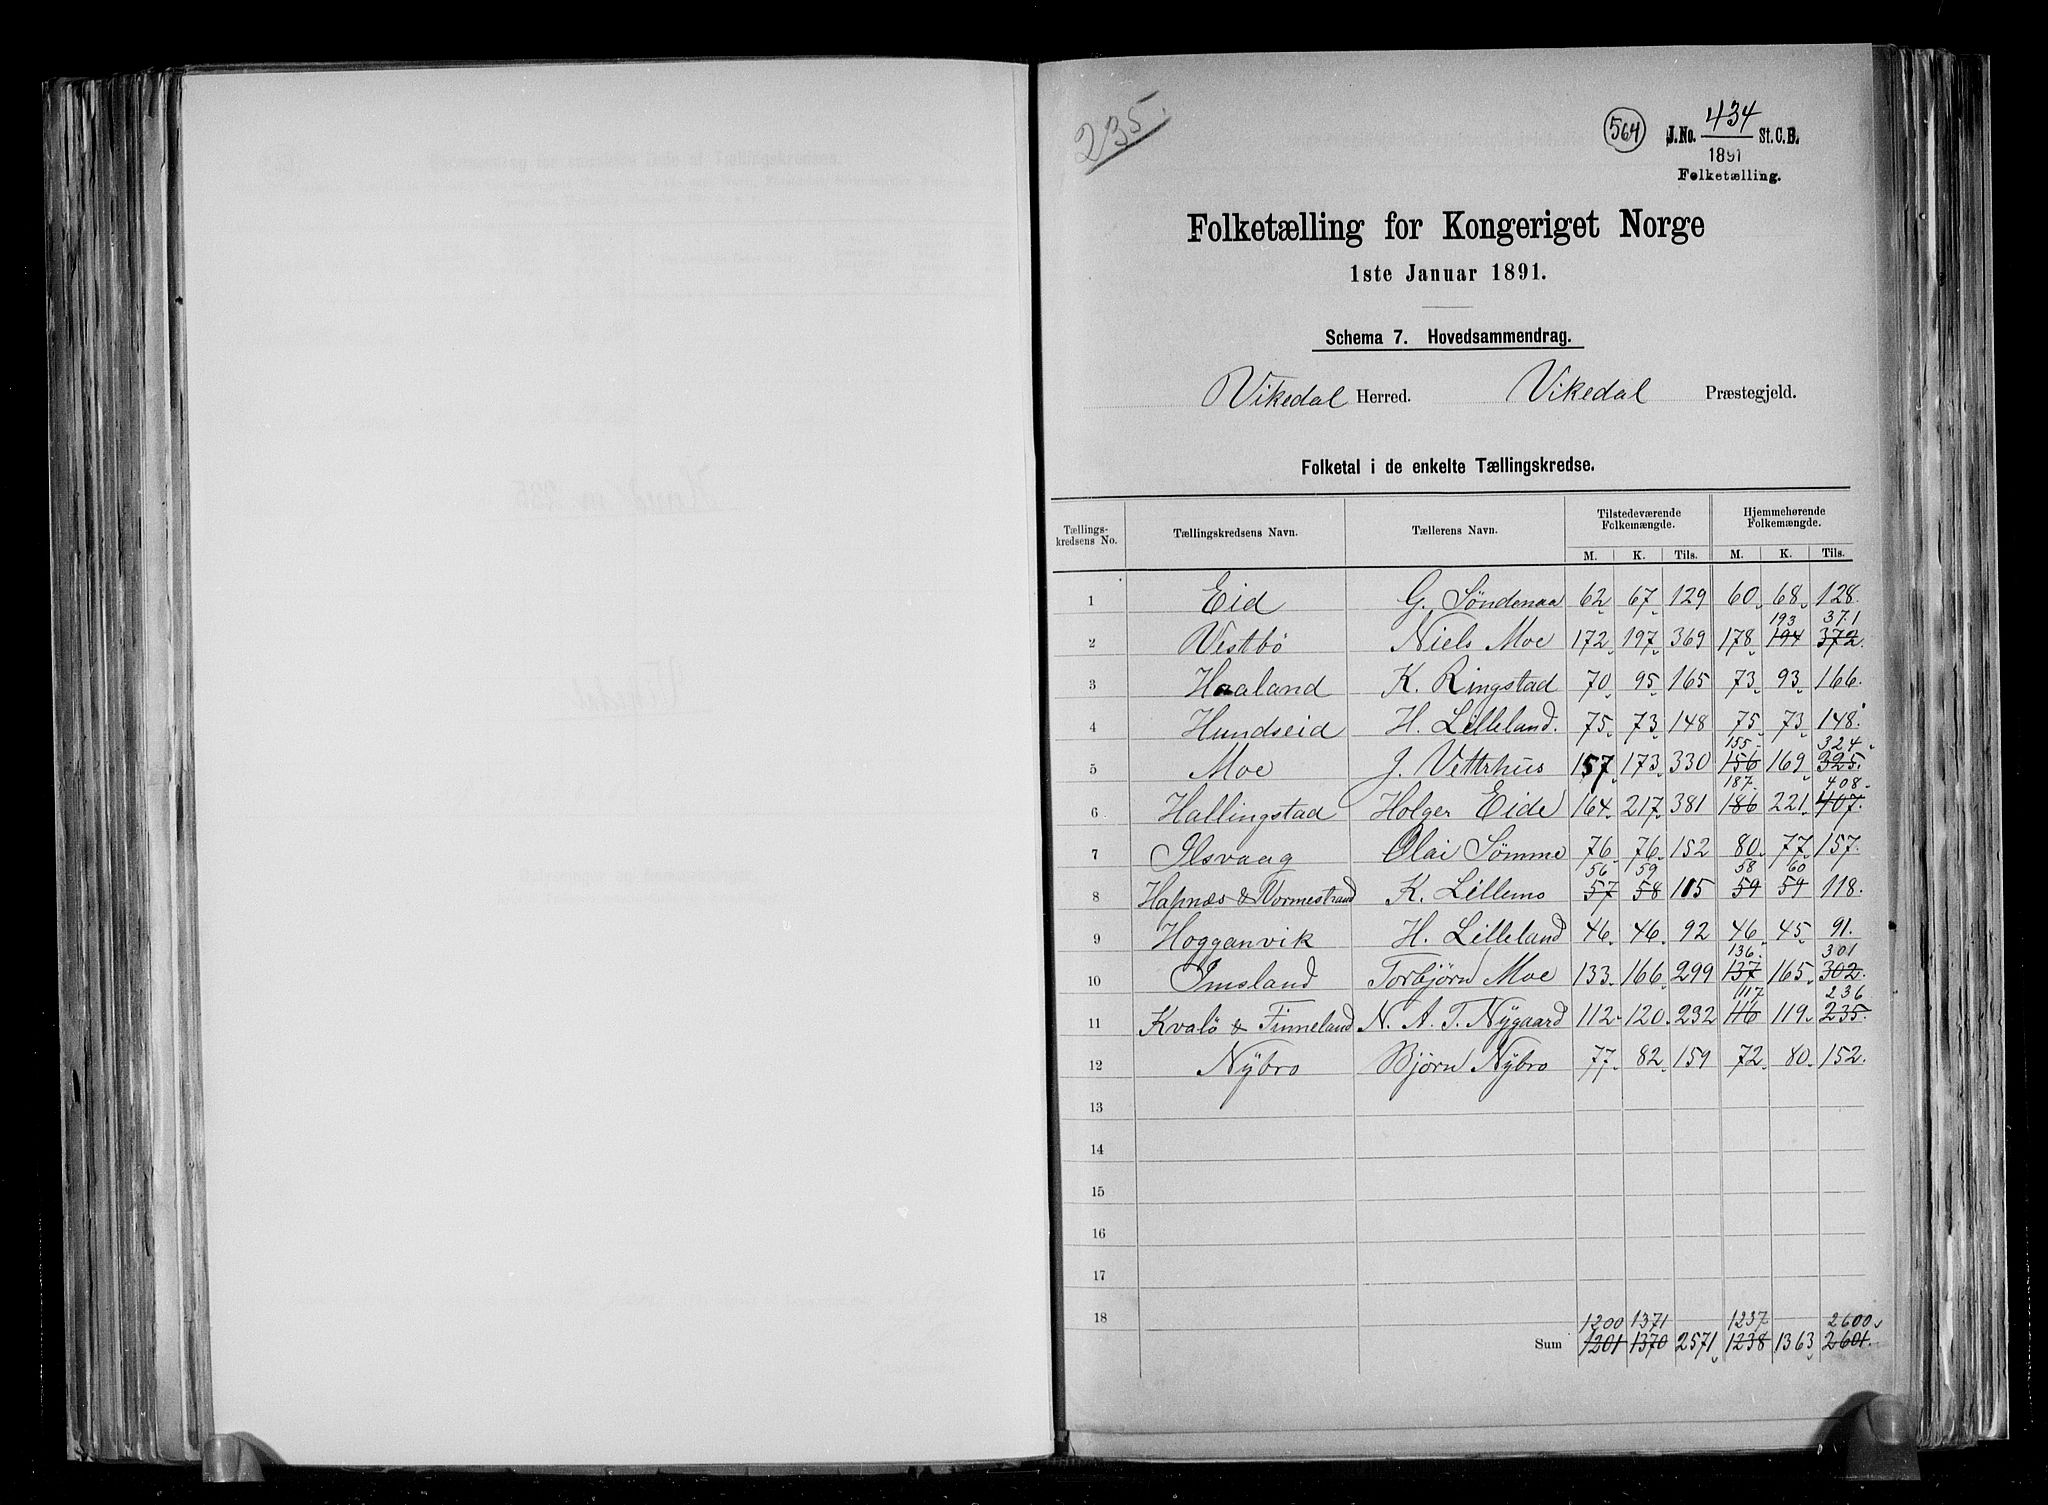 235.
564
J.No. 434 St.C.B.
1891
Folketælling.
Folketælling for Kongeriget Norge
1ste Januar 1891.
Schema 7. Hovedsammendrag.
Vikedal Herred. Vikedal Præstegjeld.
Folketal i de enkelte Tællingskredse.
Tællingskredsens No. Tællingskredsens Navn. Tællerens Navn. Tilstedeværende Folkemængde. Hjemmehørende Folkemængde.
M. K. Tils. M. K. Tils.
1 Eid G. Søndenaa 62 67 129 60 68 128
193 371
2 Vestbø Niels Moe 172 197 369 178 194 372
3 Haaland K. Ringstad 70 95 165 73 93 166
4 Hundseid H. Lilleland. 75 73 148 75 73 148
155 324
5 Moe J. Vettrhus 157 173 330 156 169 325
187 408
6 Hallingstad Holger Eide 164 217 381 186 221 407
7 Ilsvaag Olai Sømme 76 76 152 80 77 157
56 59 58 60
8 Hapnæs & Vormestrand K. Lillemo 57 58 115 59 59 118
9 Hogganvik H. Lilleland 46 46 92 46 45 91
136 301
10 Imsland Torbjørn Moe 133 166 299 137 165 302
117 236
11 Kvalø & Finneland N. A. T. Nygaard 112 120 232 116 119 235
12 Nybro Bjørn Nybro 77 82 159 72 80 152
13
14
15
16
17
18
1200 1371 1237 2600
Sum 1201 1370 2571 1238 1363 2601